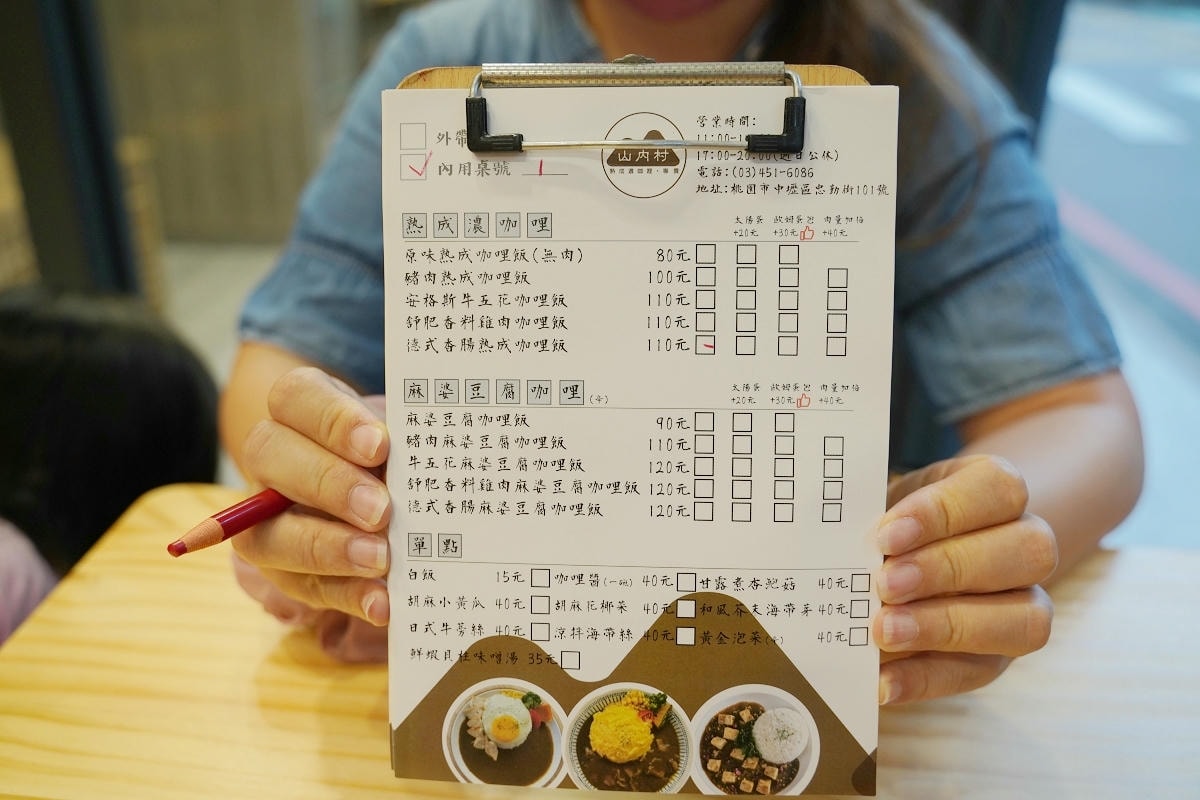 外帶
內用桌號 1
山內村
熟成濃咖哩·專賣
營業時間:
17:00-20:00(週日公休)
電話:(03)451-6086
地址:桃園市中壢區忠勤街101號
熟成濃咖哩 太陽蛋 歐姆蛋包 肉量加倍
+20元 +30元 +40元
原味熟成咖哩飯(無肉) 80元
豬肉熟成咖哩飯 100元
安格斯牛五花咖哩飯 110元
舒肥香料雞肉咖哩飯 110元
德式香腸熟成咖哩飯 110元
麻婆豆腐咖哩(辛) 太陽蛋 歐姆蛋包 肉量加倍
+20元 +30元 +40元
麻婆豆腐咖哩飯 90元
豬肉麻婆豆腐咖哩飯 110元
牛五花麻婆豆腐咖哩飯 120元
舒肥香料雞肉麻婆豆腐咖哩飯 120元
德式香腸麻婆豆腐咖哩飯 120元
單點
白飯 15元 咖哩醬(一碗) 40元 甘露煮杏鮑菇 40元
胡麻小黃瓜 40元 胡麻花椰菜 40元 和風芥末海帶芽 40元
日式牛蒡絲 40元 涼拌海帶絲 40元 黃金泡菜(辛) 40元
鮮蝦貝柱味噌湯 35元